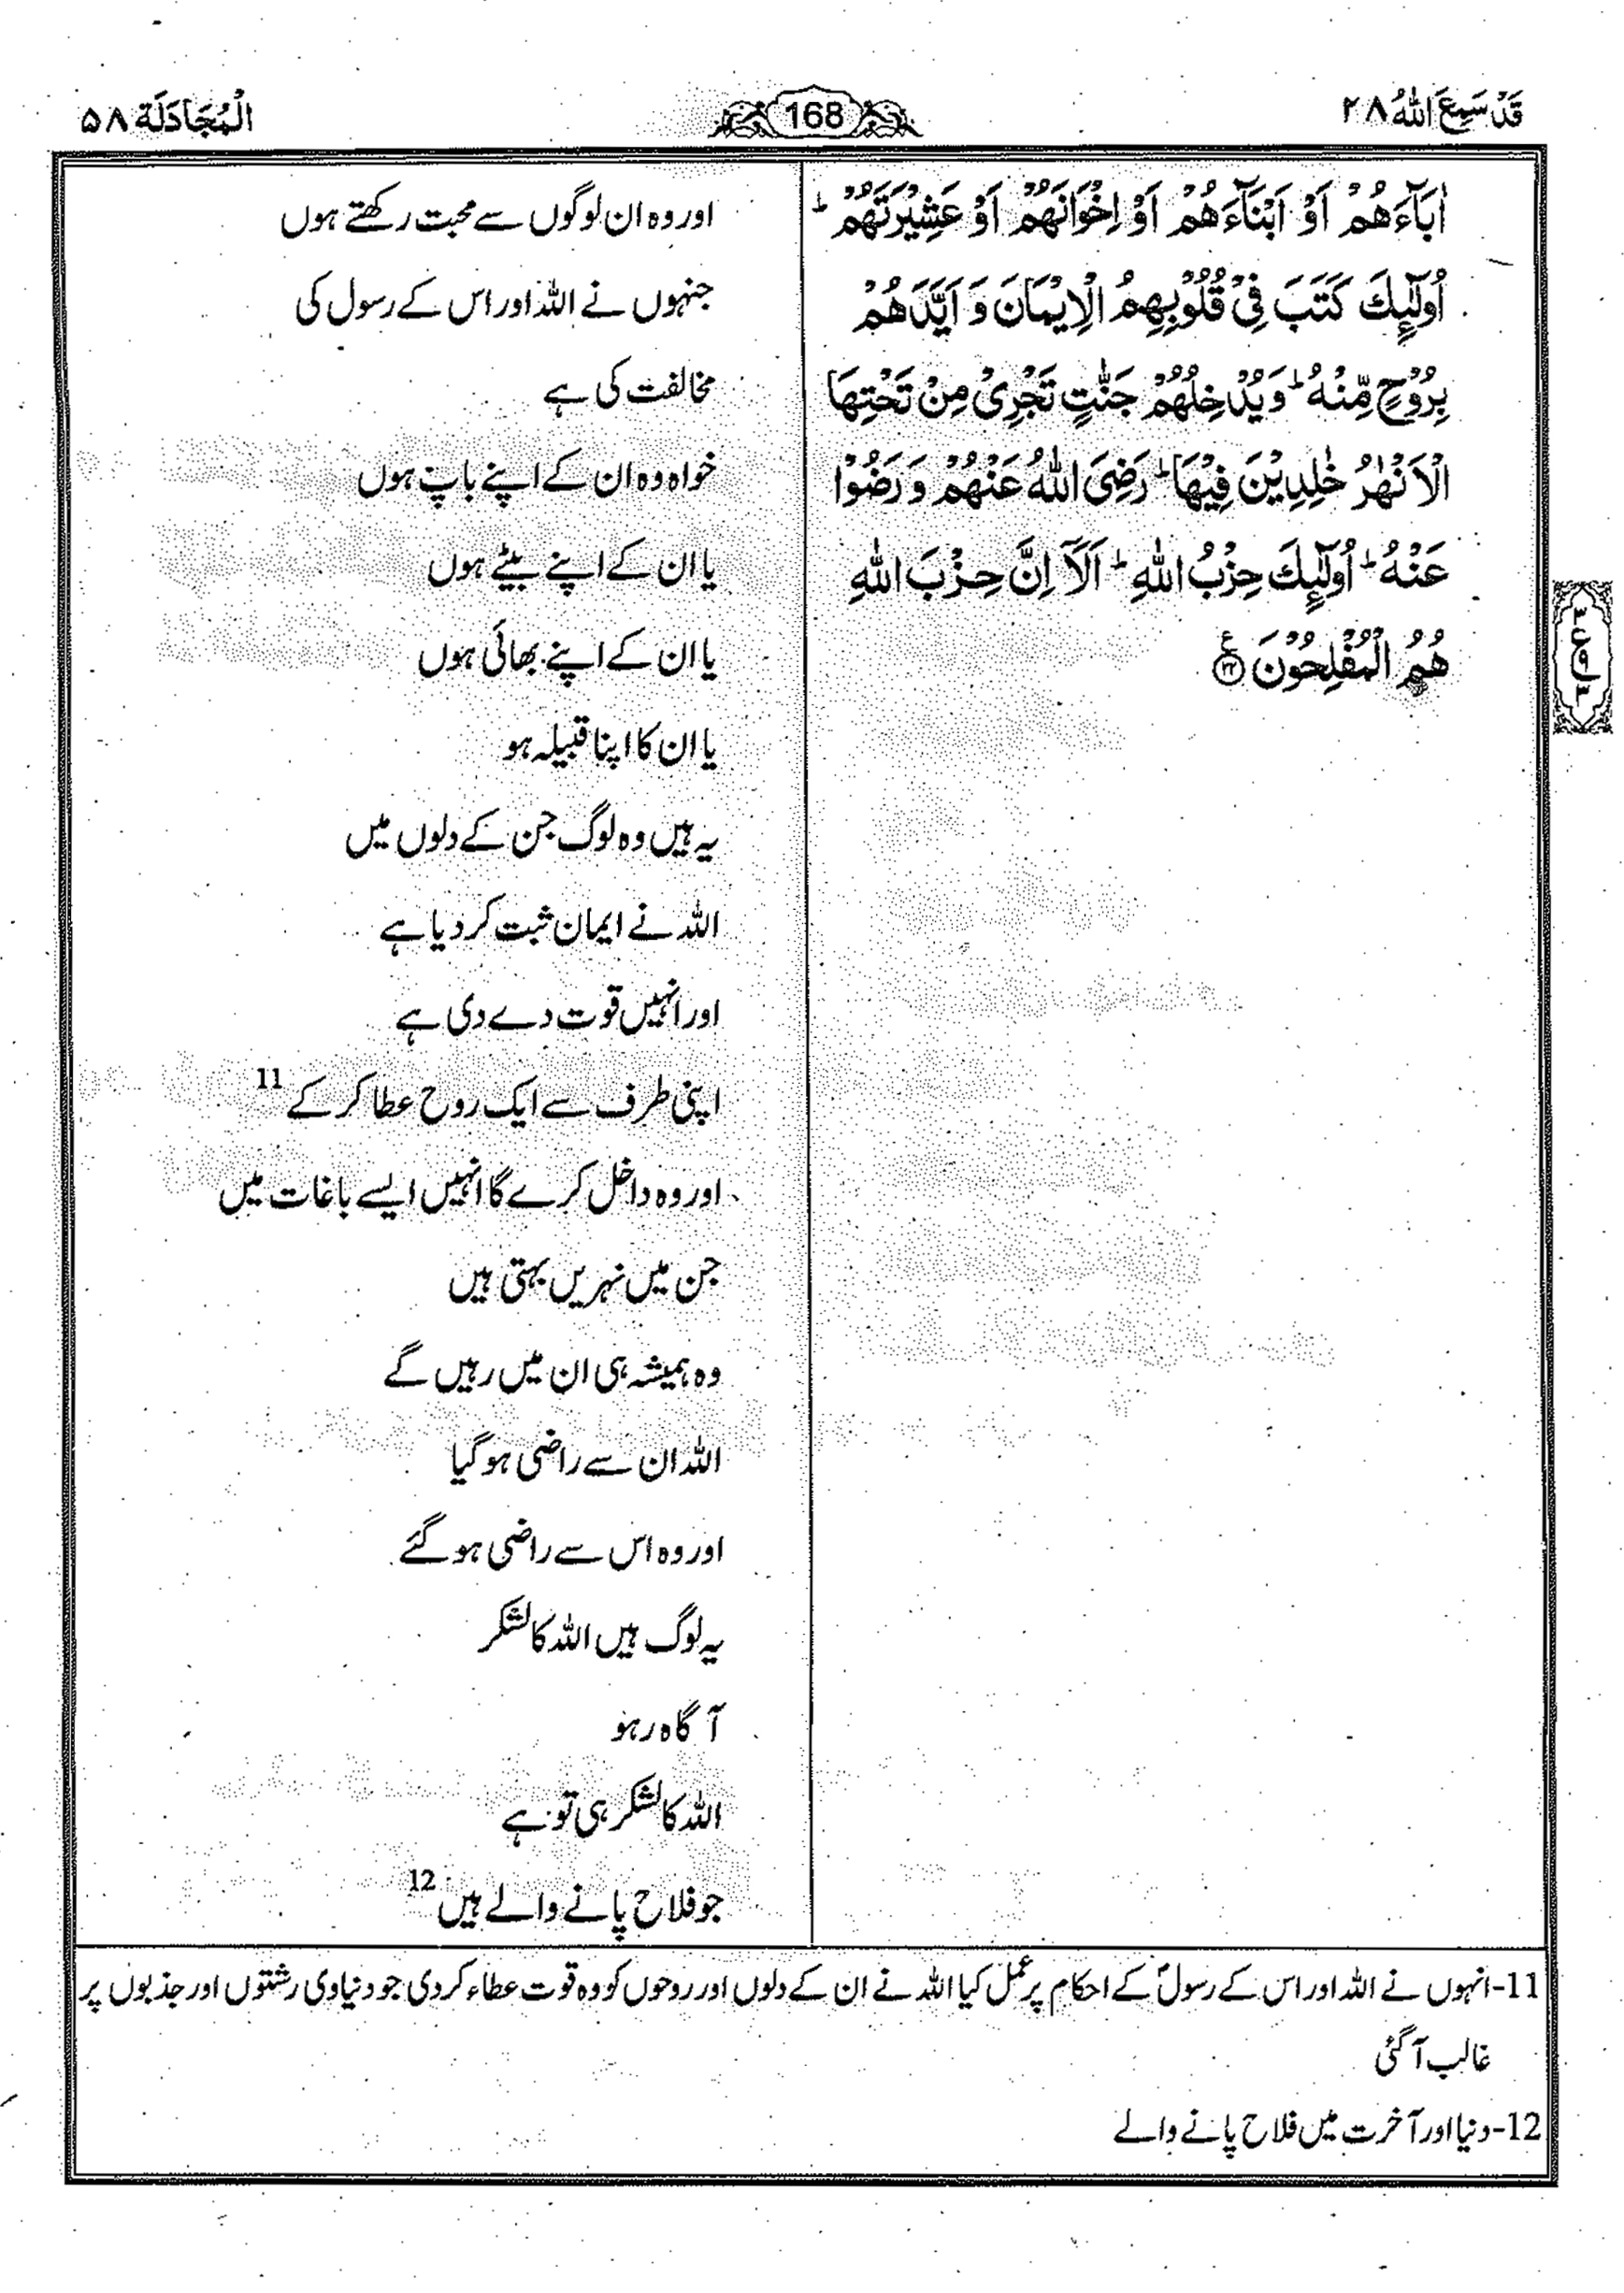 قَدْ سَمِعَ اللّٰهُ ۲۸
168
الْمُجَادَلَة ۵۸
اٰبَآءَهُمْ اَوْ اَبْنَآءَهُمْ اَوْ اِخْوَانَهُمْ اَوْ عَشِيْرَتَهُمْ ؕ
اُولٰٓئِكَ كَتَبَ فِيْ قُلُوْبِهِمُ الْاِيْمَانَ وَ اَيَّدَهُمْ
بِرُوْحٍ مِّنْهُ ؕ وَيُدْخِلُهُمْ جَنّٰتٍ تَجْرِيْ مِنْ تَحْتِهَا
الْاَنْهٰرُ خٰلِدِيْنَ فِيْهَا ؕ رَضِيَ اللّٰهُ عَنْهُمْ وَ رَضُوْا
عَنْهُ ؕ اُولٰٓئِكَ حِزْبُ اللّٰهِ ؕ اَلَآ اِنَّ حِزْبَ اللّٰهِ
هُمُ الْمُفْلِحُوْنَ ۲۲ ع
۳
ع ۹
۳
اور وہ ان لوگوں سے محبت رکھتے ہوں
جنہوں نے اللہ اور اس کے رسول کی
مخالفت کی ہے
خواہ وہ ان کے اپنے باپ ہوں
یا ان کے اپنے بیٹے ہوں
یا ان کے اپنے بھائی ہوں
یا ان کا اپنا قبیلہ ہو
یہ ہیں وہ لوگ جن کے دلوں میں
اللہ نے ایمان ثبت کر دیا ہے
اور انہیں قوت دے دی ہے
اپنی طرف سے ایک روح عطا کر کے 11
اور وہ داخل کرے گا انہیں ایسے باغات میں
جن میں نہریں بہتی ہیں
وہ ہمیشہ ہی ان میں رہیں گے
اللہ ان سے راضی ہو گیا
اور وہ اس سے راضی ہو گئے
یہ لوگ ہیں اللہ کا لشکر
آگاہ رہو
اللہ کا لشکر ہی تو ہے
جو فلاح پانے والے ہیں 12
11-انہوں نے اللہ اور اس کے رسولؐ کے احکام پر عمل کیا اللہ نے ان کے دلوں اور روحوں کو وہ قوت عطاء کر دی جو دنیاوی رشتوں اور جذبوں پر
غالب آ گئی
12-دنیا اور آخرت میں فلاح پانے والے